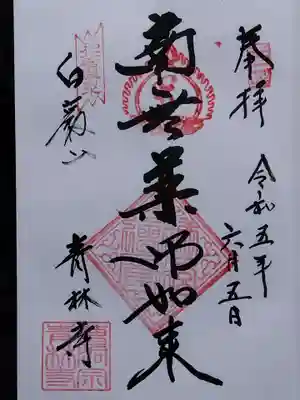 奉拝
令和五年
六月五日
南無薬師如来
白巌山
青林寺